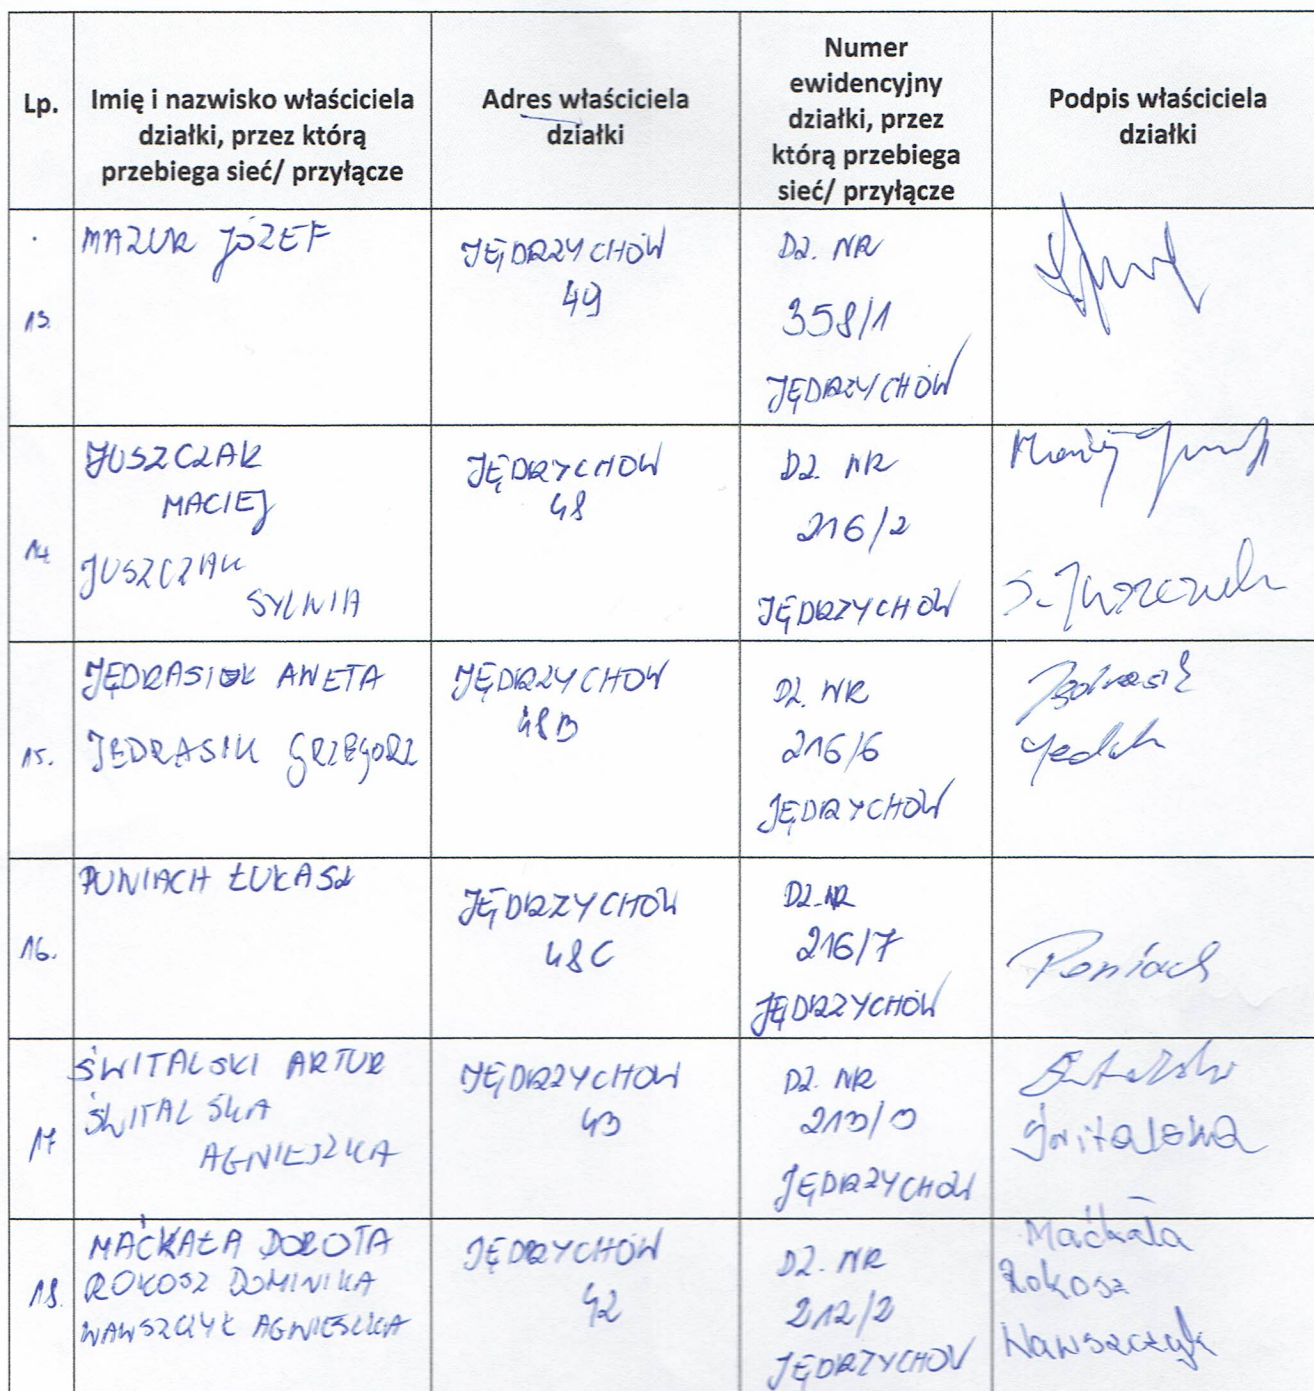 Lp.
Imię i nazwisko właściciela
działki, przez którą
przebiega sieć/ przyłącze
Adres właściciela
działki
Numer
ewidencyjny
działki, przez
którą przebiega
sieć/ przyłącze
Podpis właściciela
działki
13.
MAZUR JÓZEF
JĘDRZYCHÓW
49
DZ. NR
358/1
JĘDRZYCHÓW
14.
JUSZCZAK
MACIEJ
JUSZCZAK
SYLWIA
JĘDRZYCHÓW
48
DZ. NR
216/2
JĘDRZYCHÓW
Maciej
S. Juszczak
15.
JĘDRASIK ANETA
JĘDRASIK GRZEGORZ
JĘDRZYCHÓW
48B
DZ. NR
216/6
JĘDRZYCHÓW
Jędrasik
16.
PUNIACH ŁUKASZ
JĘDRZYCHÓW
48C
DZ. NR
216/7
JĘDRZYCHÓW
Poniach
17
ŚWITALSKI ARTUR
ŚWITALSKA
AGNIESZKA
JĘDRZYCHÓW
43
DZ. NR
213/3
JĘDRZYCHÓW
Świtalska
18.
MAĆKAŁA DOROTA
ROKOSZ DOMINIKA
WAWSZCZYK AGNIESZKA
JĘDRZYCHÓW
42
DZ. NR
212/2
JĘDRZYCHÓW
Maćkała
Rokosz
Wawszczyk